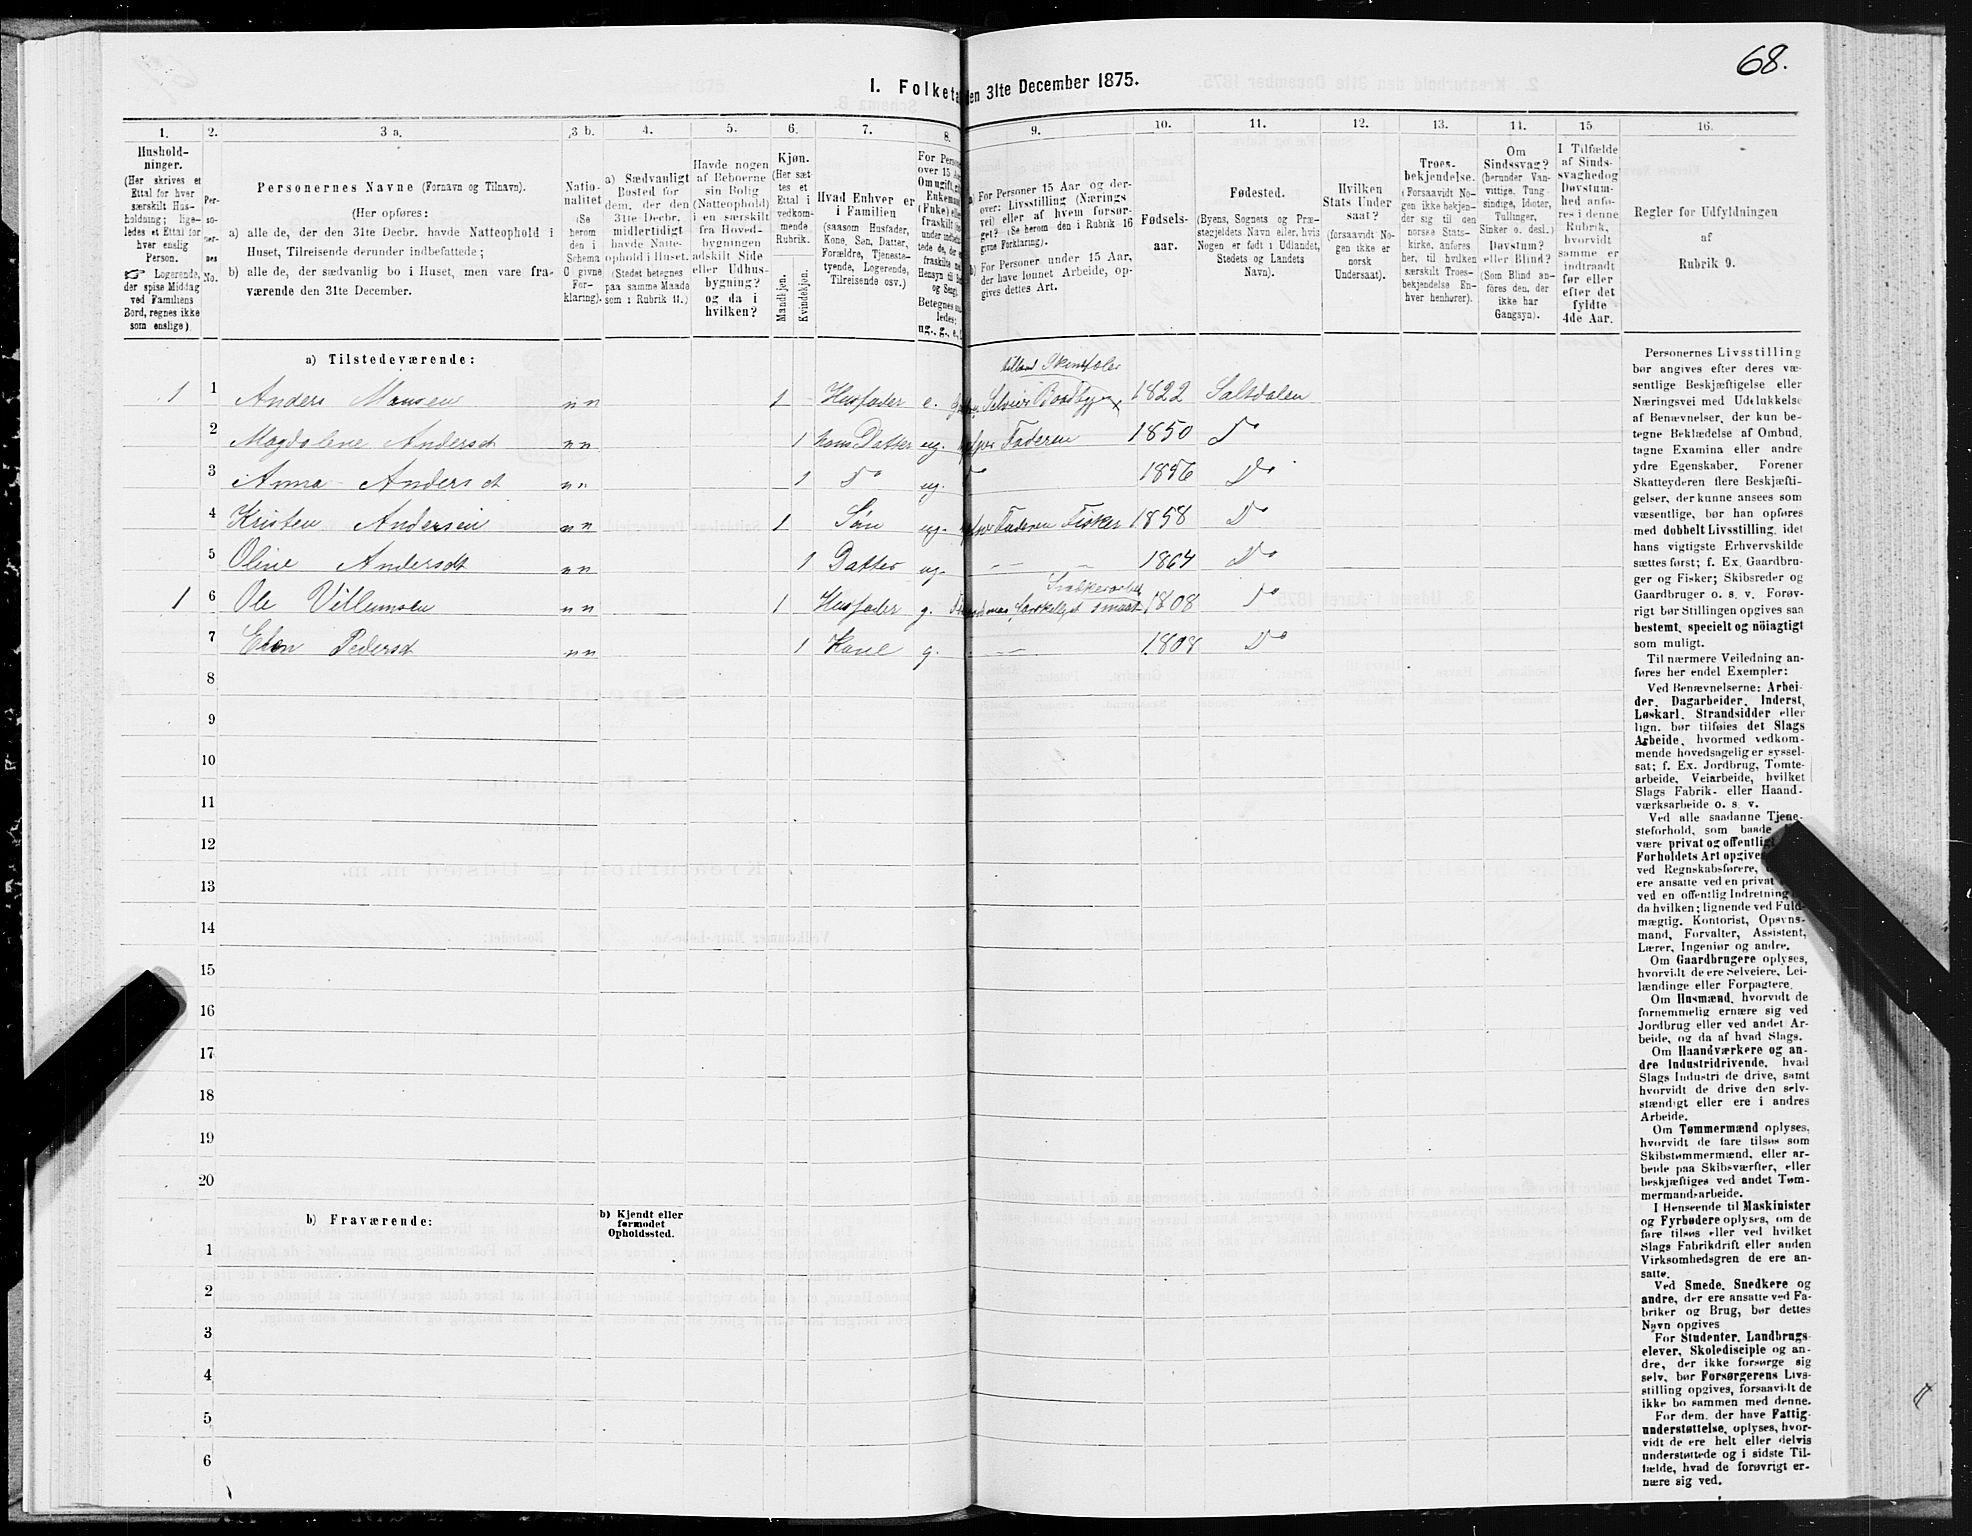 68.
I. Folketa
en 31te December 1875.
1. 2. 3 a. 3 b. 4. 5. 6. 7. 8. 9. 10. 11. 12. 13. 14. 15 16.
Hushold-
ninger.
(Her skrives et
Ettal for hver
særskilt Hus-
holdning; lige-
ledes et Ettal for
hver enslig
Person.
☞ Logerende,
der spise Middag
ved Familiens
Bord, regnes ikke
som enslige).
Per-
so-
ner-
nes
No.
Personernes Navne (Fornavn og Tilnavn).
(Her opføres:
a) alle de, der den 31te Decbr. havde Natteophold i
Huset, Tilreisende derunder indbefattede;
b) alle de, der sædvanlig bo i Huset, men vare fra-
værende den 31te December.
Natio-
nalitet
(Se
herom
den i
Schema
C givne
For-
klaring).
a) Sædvanligt
Bosted for
dem, der den
31te Decbr.
midlertidigt
havde Natte-
ophold i Huset.
(Stedet betegnes
paa samme Maade
som i Rubrik 11.)
Havde nogen
af Beboerne
sin Bolig
(Natteophold)
i en særskilt
fra Hoved-
bygningen
adskilt Side
eller Udhus-
bygning?
og da i
hvilken?
Kjøn.
(Her sæt-
tes et
Ettal i
vedkom-
mende
Rubrik.
Mandkjøn.
Kvindekjøn.
Hvad Enhver er
i Familien
(saasom Husfader,
Kone, Søn, Datter,
Forældre, Tjeneste-
tyende, Logerende,
Tilreisende osv.)
For Perso
over 15 Aa
Om ugift, gif
Enkeman
(Enke) elle
fraskilt (se
under indbefa
tede de, de
fraskilte me
Hensyn til Bo
og Seng).
Betegnes saa
ledes:
ug., g., e.,
a) For Personer 15 Aar og der-
over: Livsstilling (Nærings
vei) eller af hvem forsør-
get? (Se herom den i Rubrik 16
givne Forklaring).
b) For Personer under 15 Aar,
der have lønnet Arbeide, op-
gives dettes Art.
Fødsels-
aar.
Fødested.
(Byens, Sognets og Præ-
stegjeldets Navn eller, hvis
Nogen er født i Udlandet,
Stedets og Landets
Navn).
Hvilken
Stats Under
saat?
(forsaavidt No-
gen ikke er
norsk
Undersaat).
Troes-
bekjendelse.
(Forsaavidt No-
gen ikke bekjen-
der sig til den
norske Stats-
kirke, anføres
her, til hvilken
særskilt Troes-
bekjendelse En-
hver henhører).
Om
Sindssvag?
(herunder Van-
vittige, Tung-
sindige, Idioter,
Tullinger,
Sinker o. desl.)
Døvstum?
eller Blind?
(Som Blind an-
føres den, der
ikke har
Gangsyn).
I Tilfælde
af Sinds-
svaghed og
Døvstum-
hed anfø-
res i denne
Rubrik,
hvorvidt
samme er
indtraadt
før eller
efter det
fyldte
4de Aar.
Regler for Udfyldningen
af
Rubrik 9.
a) Tilstedeværende:
1 1 Anders Monsen nn 1 Husfader e. Selveier 1822 Saltdalen
2 Magdalene Andersdt nn 1 Datter ug. Faderen 1850 Do
3 Anna Andersdt nn 1 Do ug. Do 1856 Do
4 Kristen Andersen nn 1 Søn ug. Faderen Fisker 1858 Do
5 Oline Andersdt nn 1 Datter ug. — — 1864 Do
1 6 Ole Villumsen nn 1 Husfader g. 1808 Do
7 Elen Pedersdt nn 1 Kone g. — — 1808 Do
8
9
10
11
12
13
14
15
16
17
18
19
20
b) Fraværende:
b) Kjendt eller
formodet
Opholdssted.
1
2
3
4
5
6
Personernes Livsstilling
bør angives efter deres væ-
sentlige Beskjæftigelse eller
Næringsvei med Udelukkelse
af Benævnelser, der kun be-
tegne Beklædelse af Ombud,
tagne Examina eller andre
ydre Egenskaber. Forener
Skatteyderen flere Beskjæfti-
gelser, der kunne ansees som
væsentlige, bør han opføres
med dobbelt Livsstilling, idet
hans vigtigste Erhvervskilde
sættes først; f. Ex. Gaardbru-
ger og Fisker; Skibsreder og
Gaardbruger o. s. v. Forøv-
rigt bør Stillingen opgives saa
bestemt, specielt og nöiagtigt
som muligt.
Til nærmere Veiledning an-
føres her endel Exempler:
Ved Benævnelserne: Arbei-
der, Dagarbeider, Inderst,
Løskarl, Strandsidder eller
lign. bør tilføies det Slags
Arbeide, hvormed vedkom-
mende hovedsagelig er syssel-
sat; f. Ex. Jordbrug, Tomte-
arbeide, Veiarbeide, hvilket
Slags Fabrik- eller Haand-
værksarbeide o. s. v.
Ved alle saadanne Tjene-
steforhold, som baade
være privat og offentligt
Forholdets Art opgives
ved Regnskabsførere,
ere ansatte ved en privat
ved en offentlig Indretning
da hvilken; lignende ved Fuld-
mægtig, Kontorist, Opsyns-
mand, Forvalter, Assistent,
Lærer, Ingeniør og andre.
Om Gaardbrugere oplyses,
hvorvidt de ere Selveiere, Lei-
lændinge eller Forpagtere.
Om Husmænd, hvorvidt de
fornemmelig ernære sig ved
Jordbrug eller ved andet Ar-
beide, og da af hvad Slags.
Om Haandværkere og an-
dre Industridrivende, hvad
Slags Industri de drive, samt
hvorvidt de drive den selv-
stændigt eller ere i andres
Arbeide.
Om Tømmermænd oplyses,
hvorvidt de fare tilsøs som
Skibstømmermænd, eller ar-
beide paa Skibsværfter, eller
beskjæftiges ved andet Tøm-
mermandsarbeide.
I Henseende til Maskinister
og Fyrbødere oplyses, om de
fare tilsøs eller ved hvilket
Slags Fabrikdrift eller anden
Virksomhedsgren de ere an-
satte.
Ved Smede, Snedkere og
andre, der ere ansatte ved Fa-
briker og Brug, bør dettes
Navn opgives
For Studenter, Landbrugs-
elever, Skoledisciple og an-
dre, der ikke forsørge sig
selv, bør Forsørgerens Livs-
stilling opgives, forsaavidt de
ikke bo sammen med denne.
For dem, der have Fattig-
understøttelse, oplyses, hvor-
vidt de ere helt eller delvis
understøttede og i sidste Til-
fælde, hvad de forøvrigt er-
nære sig ved.